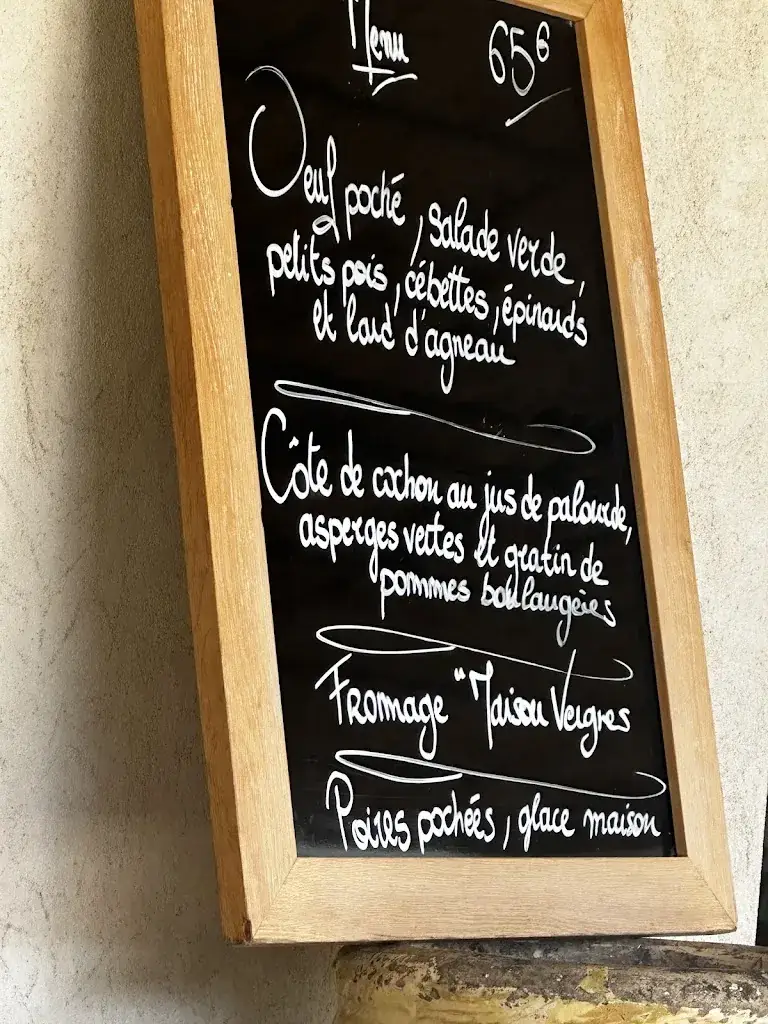 Menu 65€
Oeuf poché, salade verde,
petits pois, cébettes, épinards
et lard d'agneau
Côte de cochon au jus de palourde,
asperges vertes et gratin de
pommes boulangères
Fromage "Maison Vergnes
Poires pochées, glace maison